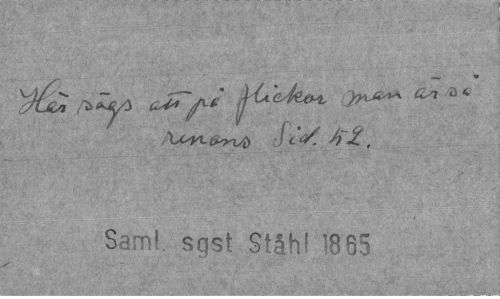 Här sägs att på flickor man är så
renons Sid. 52.
Saml. sgst Ståhl 1865